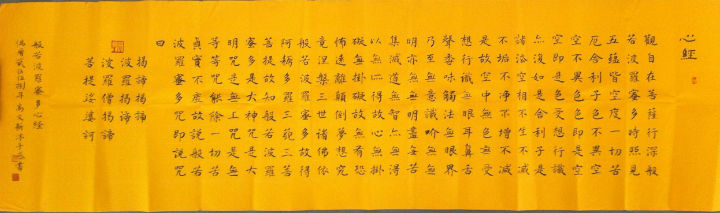 心經
觀自在菩薩行深般
若波羅蜜多時照見
五蘊皆空度一切苦
厄舍利子色不異空
空不異色色即是空
空即是色受想行識
亦復如是舍利子是
諸法空相不生不滅
不垢不淨不增不減
是故空中無色無受
想行識無眼耳鼻舌
聲香味觸法無眼界
乃至無意識界無無
明亦無無明盡無苦
集滅道無智亦無得
以無所得故心無掛
礙無掛礙故無有恐
怖遠離顛倒夢想究
竟涅槃三世諸佛依
般若波羅蜜多故得
阿耨多羅三藐三菩
菩提故知般若波羅
蜜多是大神咒是大
明咒是無上咒是無
等等咒能除一切苦
真實不虛故說般若
波羅蜜多咒即說咒
曰
揭諦揭諦
波羅揭諦
波羅僧揭諦
菩提娑婆訶
般若波羅蜜多心經